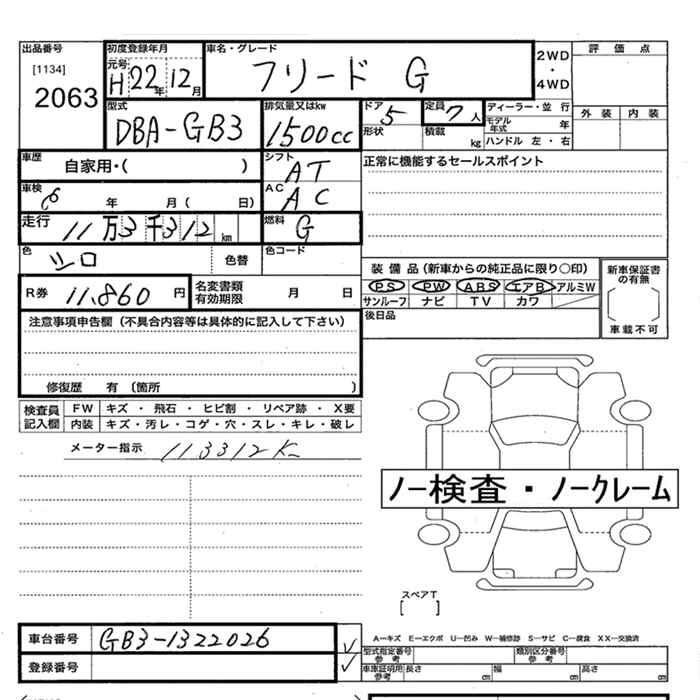 出品番号 初度登録年月 車名・グレード 2WD・4WD 評価点
[1134] 元号 H 22年 12月 フリード G
2063
型式 排気量又はkw ドア 定員 ディーラー・並行 外装 内装
DBA-GB3 1500cc 5 7人 モデル年式 年
形状 積載 kg ハンドル 左・右
車歴 自家用・( ) シフト AT 正常に機能するセールスポイント
車検 年 月( 日) AC AC
走行 11万3千312km 燃料 G
色 シロ 色替 色コード
装備品(新車からの純正品に限り○印) 新車保証書の有無
R券 11,860円 名変書類有効期限 月 日 PS PW ABS エアB アルミW
サンルーフ ナビ TV カワ
車載不可
注意事項申告欄(不具合内容等は具体的に記入して下さい) 後日品
修復歴 有(箇所 )
検査員記入欄 FW キズ・飛石・ヒビ割・リペア跡・X要
内装 キズ・汚レ・コゲ・穴・スレ・キレ・破レ
メーター指示 113312K
ノー検査・ノークレーム
スペアT
[ ]
車台番号 GB3-1322026 A―キズ E―エクボ U―凹み W―補修跡 S―サビ C―腐食 XX―交換済
型式指定番号参考 類別区分番号参考
登録番号 車庫証明用参考 長さ cm 幅 cm 高さ cm